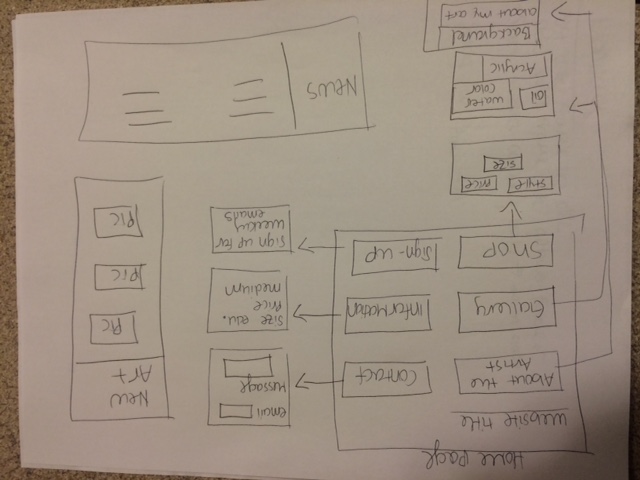 Home page
website title
About the
Artist
Contact
Gallery
Information
Shop
Sign-up
email
Message
Size edu.
Price
medium
Sign up for
weekly
emails
New
Art
Pic
Pic
Pic
style
price
size
oil
water
color
Acrylic
Background
about my art
News